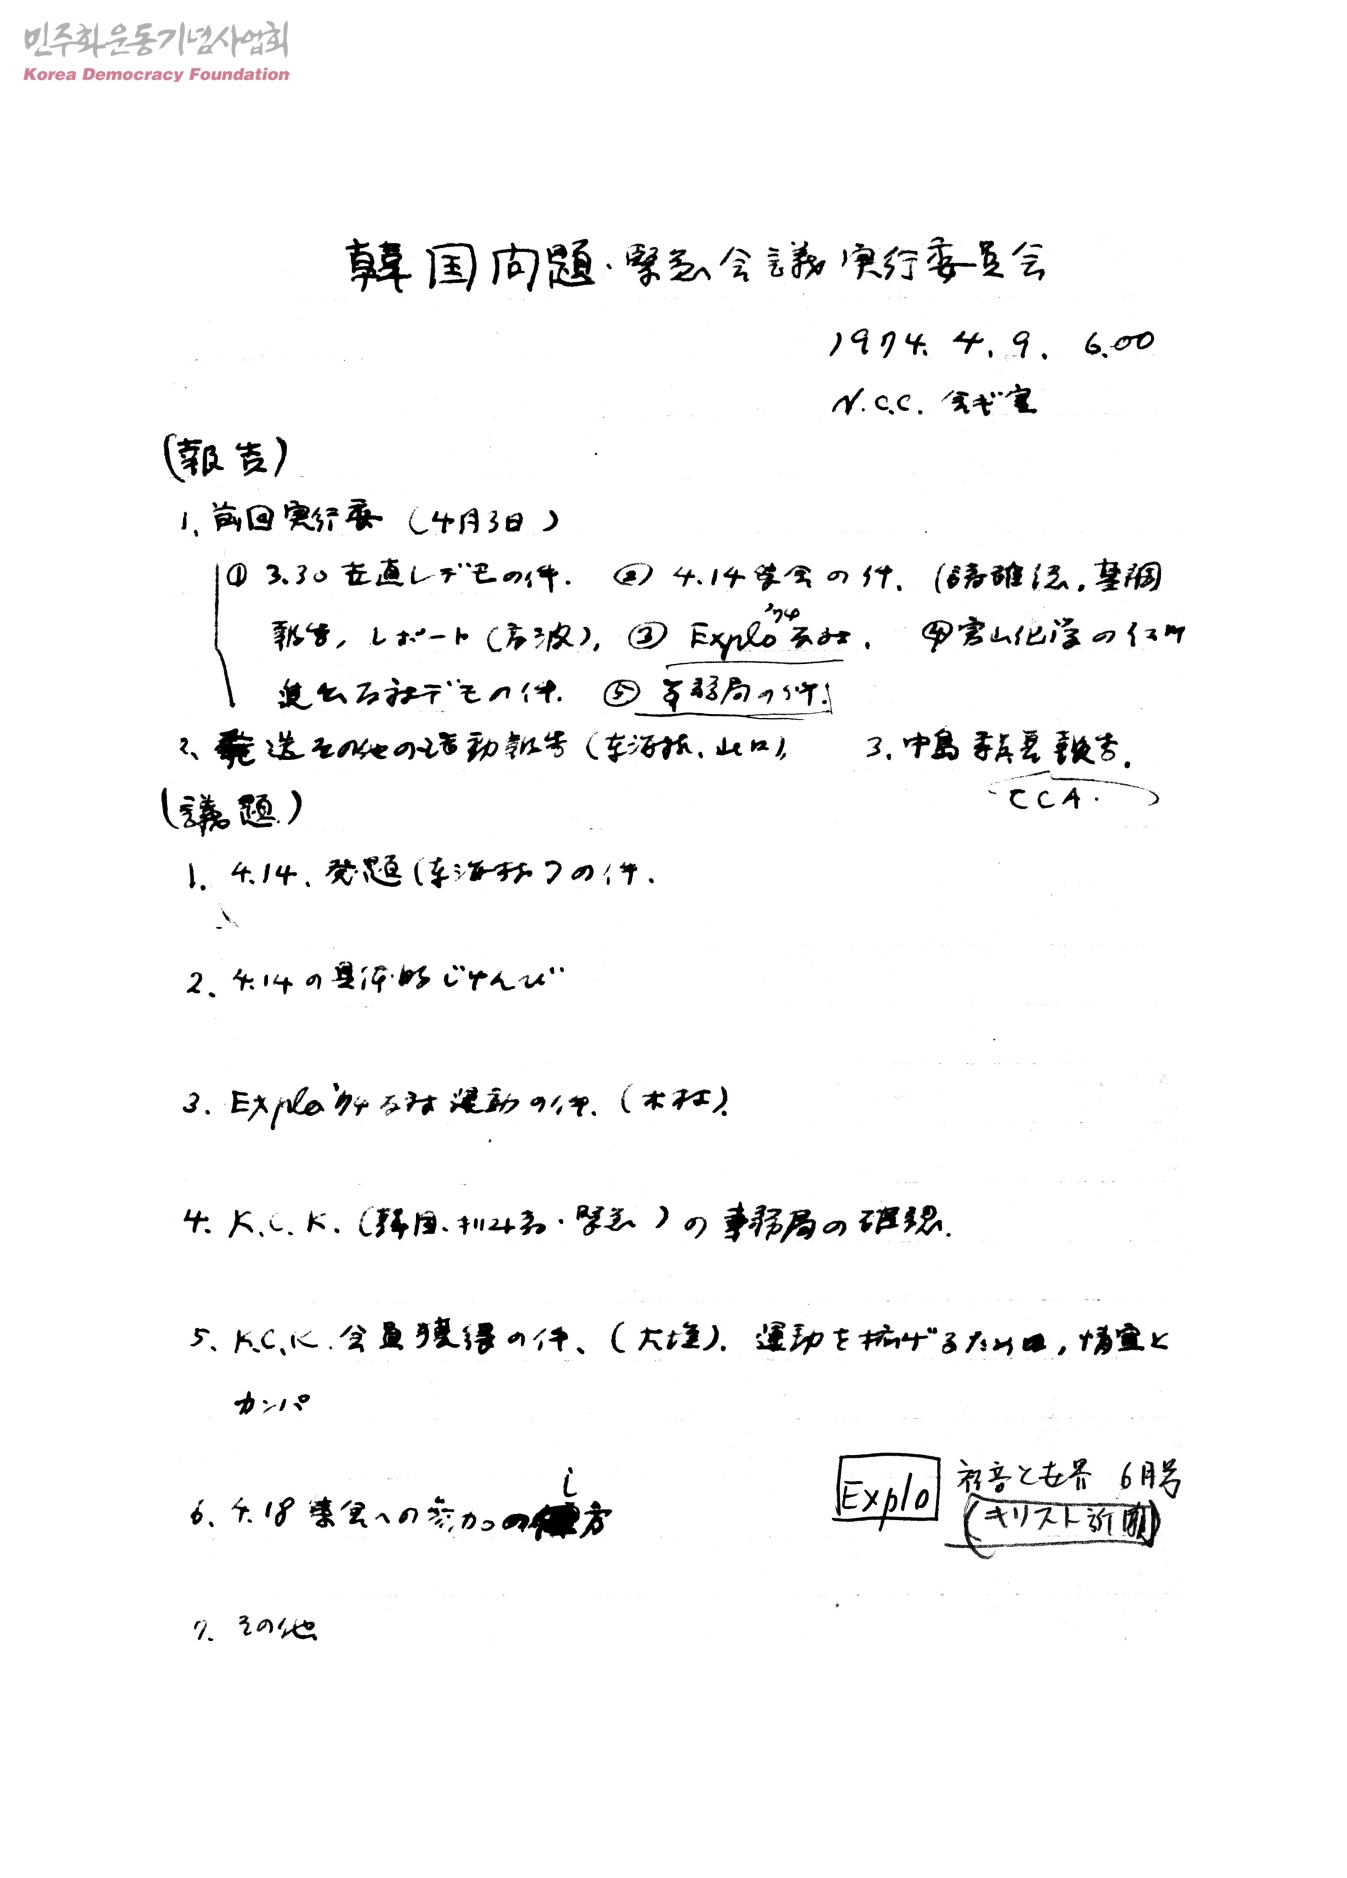 민주화운동기념사업회
Korea Democracy Foundation
韓国问題・緊急会議実行委員会
1974. 4. 9. 6.00
N.C.C. 会ギ室
(報告)
1. 前回実行委 (4月3日)
① 3.30 デモの件. ② 4.14 集会の件. 基調
'74
報告, レポート ③ Explo 反対. ④ 富山化学の
進出反対デモの件. ⑤ 事務局の件.
2. 発送その他の活動報告 (東海林, 山口), 3. 中島 委員長 報告.
CCA.
(議題)
1. 4.14. 発題 (東海林)の件.
2. 4.14の具体的じゅんび
3. Explo'74反対運動の件. (木村).
4. K.C.K. (韓国・キリスト者・緊急)の事務局の確認.
5. K.C.K. 会員獲得の件、(大塩). 運動を拡げるため, 情宣と
カンパ
し
6. 4.18 集会への参加の方
Explo 福音と世界 6月号
(キリスト新聞)
7. その他